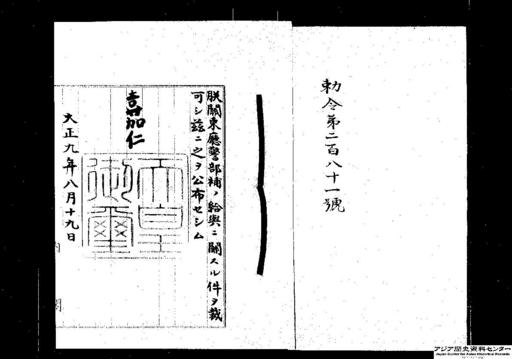 勅令第二百八十一號
朕關東廳警部補ノ給與ニ關スル件ヲ裁
可シ茲ニ之ヲ公布セシム
嘉仁
天皇
御璽
大正九年八月十九日
内閣
アジア歴史資料センター
Japan Center for Asian Historical Records